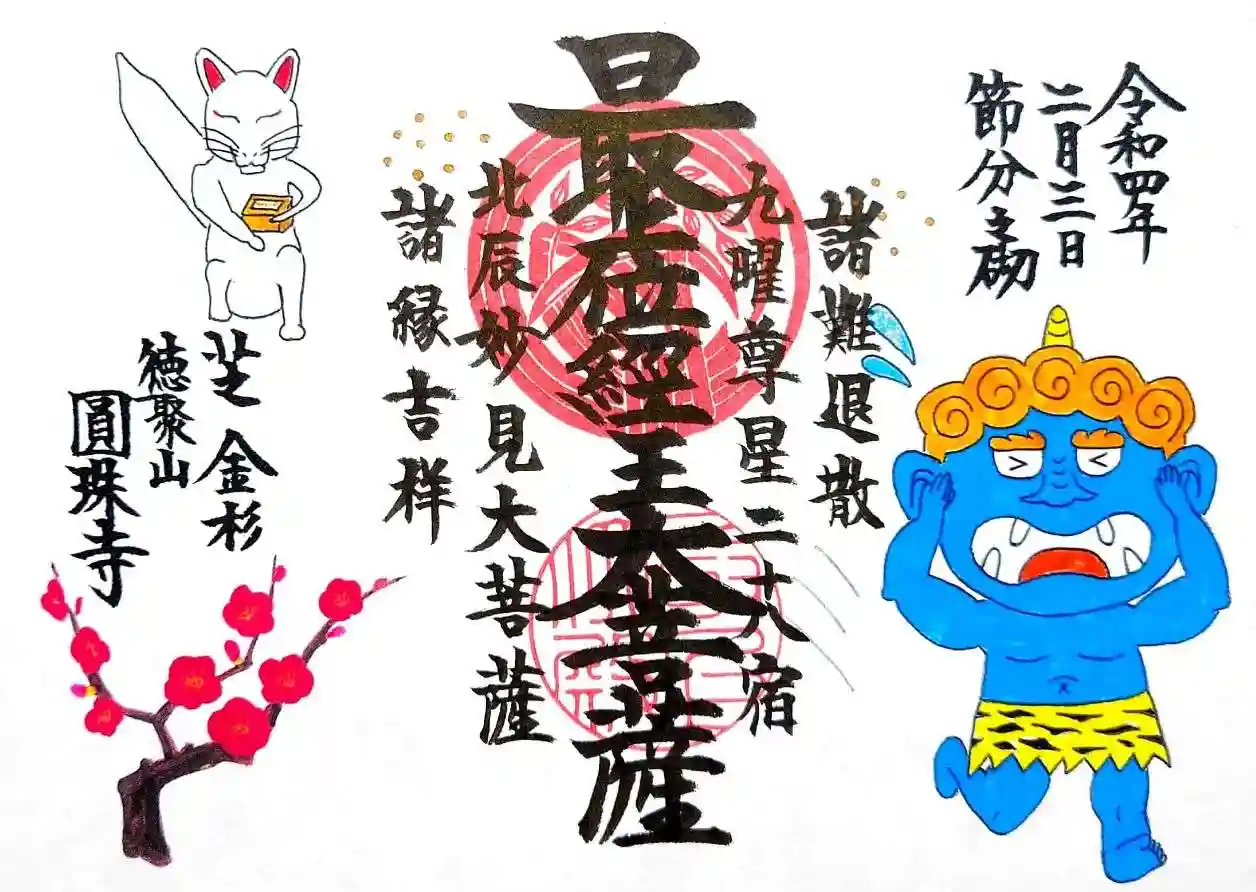 令和四年
二月三日
節分之砌
諸難退散
九曜尊星二十八宿
最上位經王大善菩薩
北辰妙見大菩薩
諸縁吉祥
芝金杉
徳聚山
圓珠寺